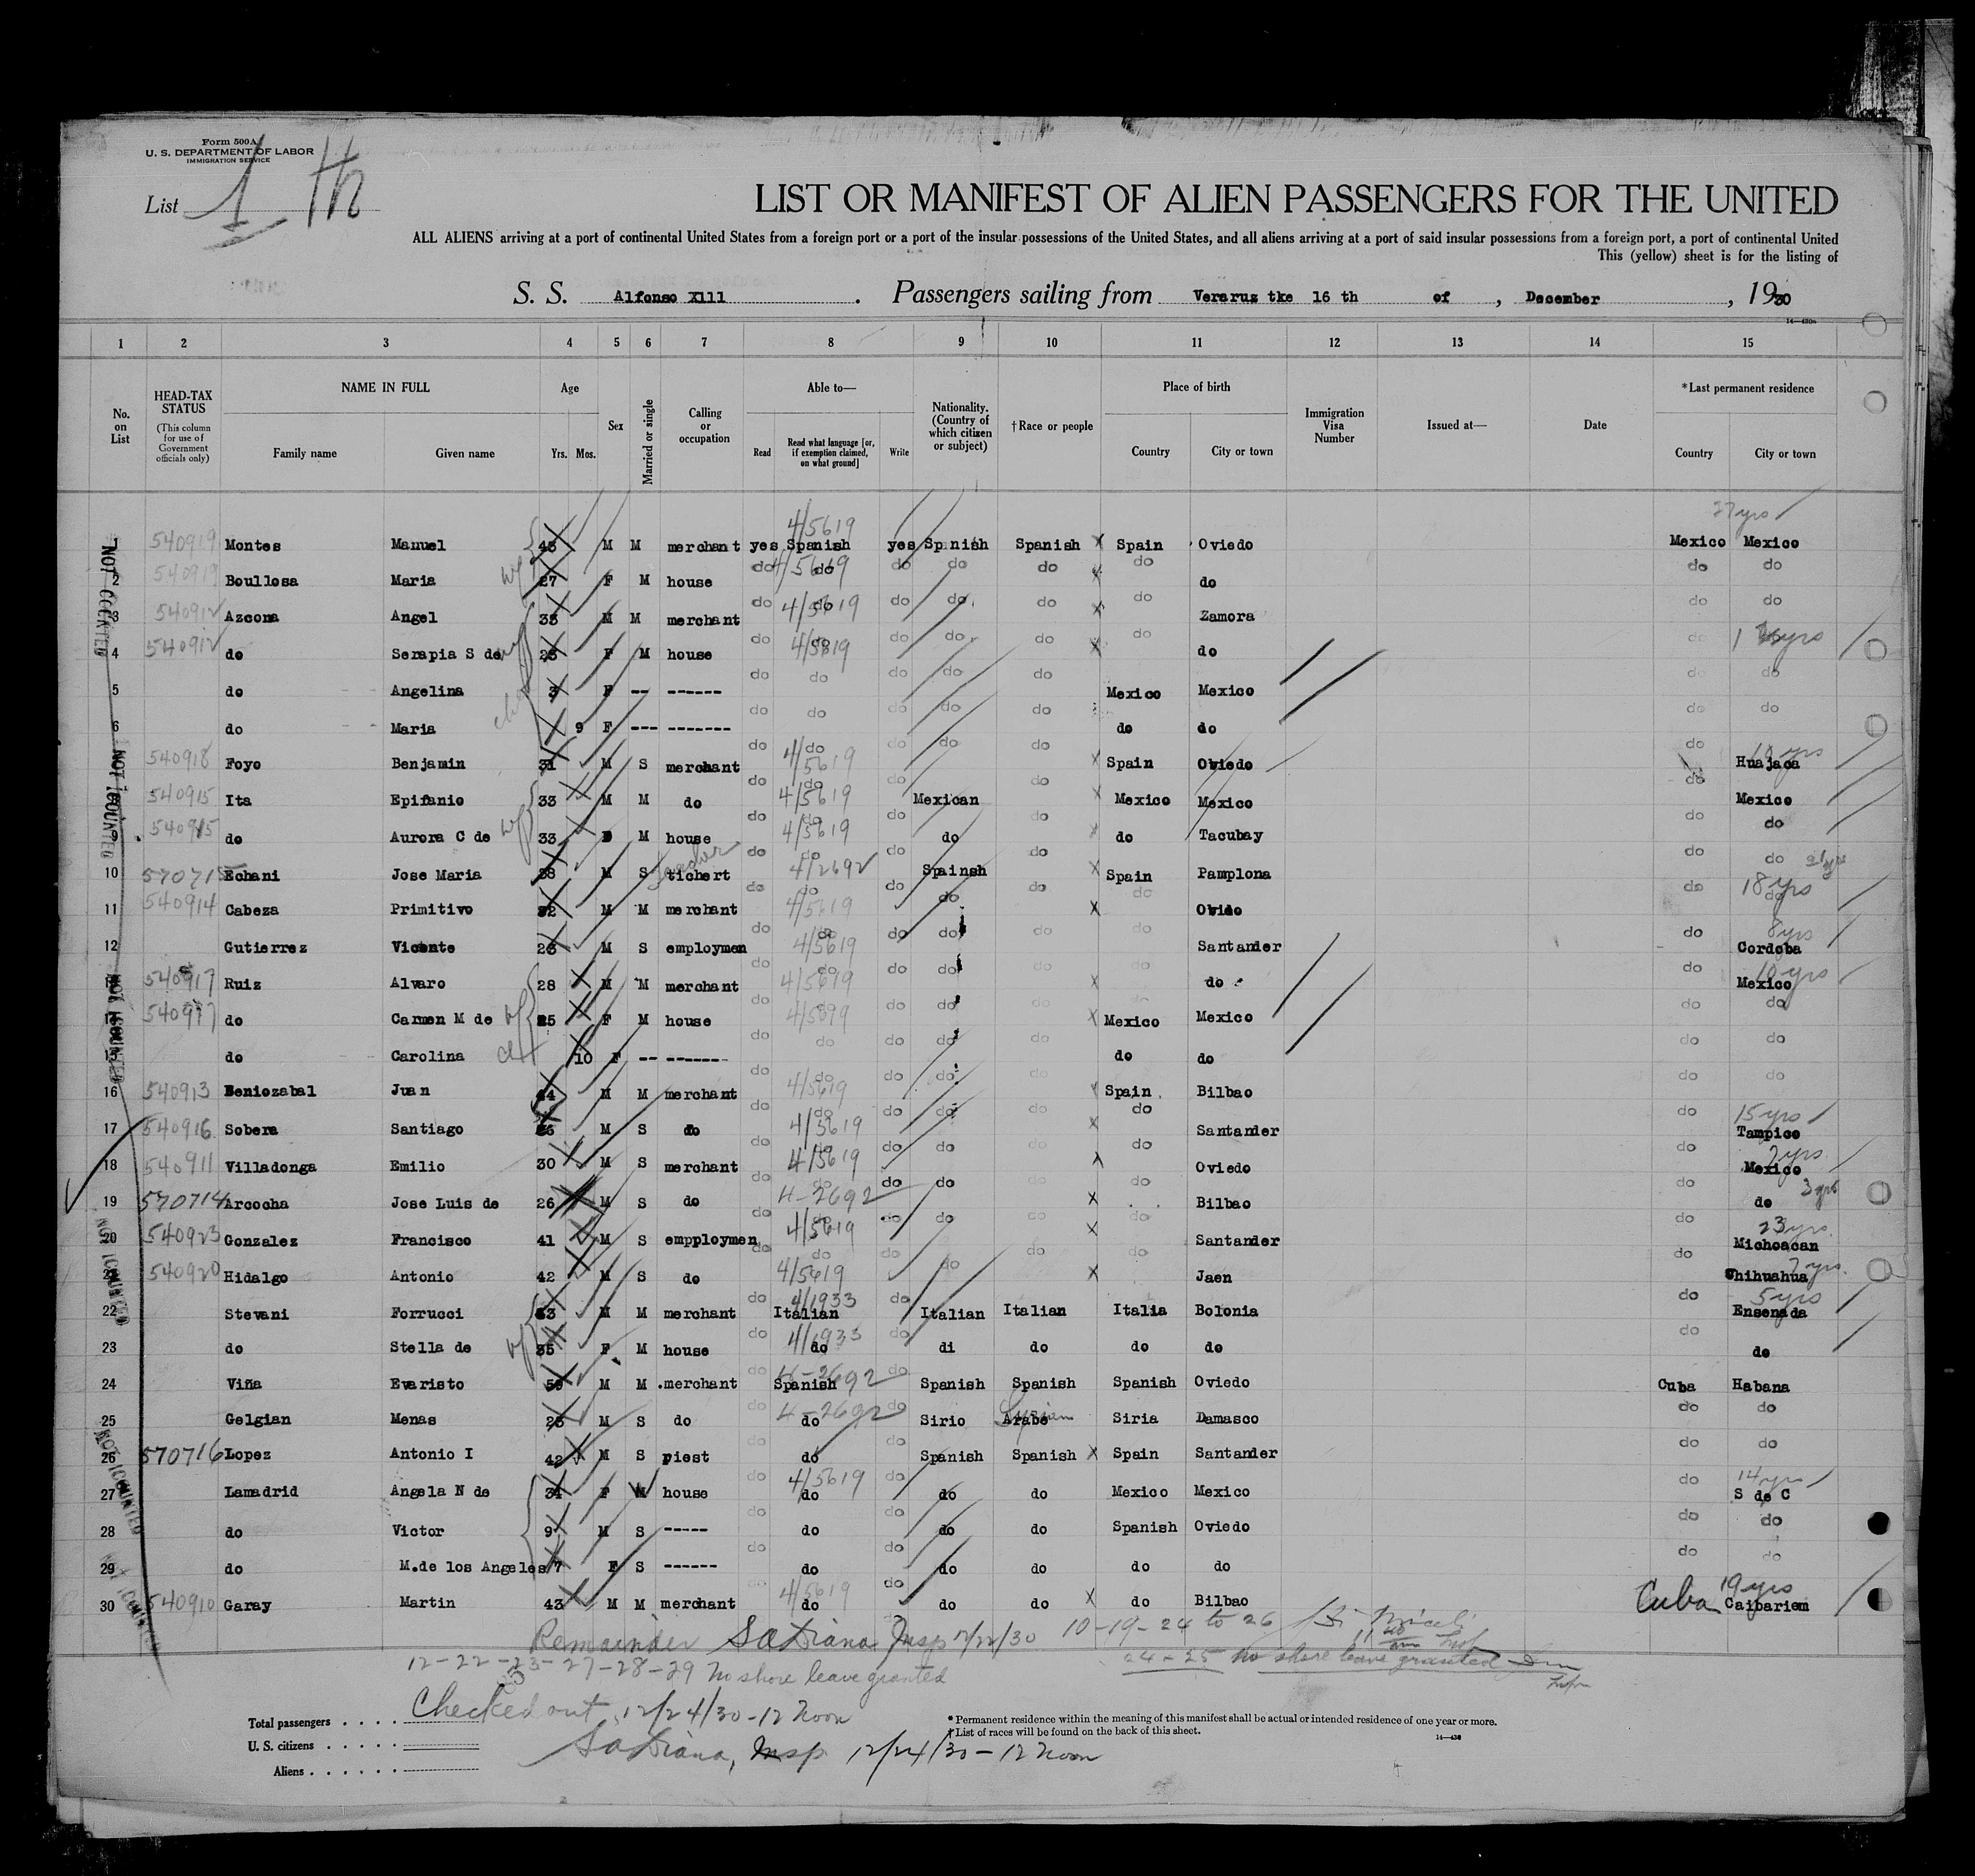 Form 500A
U. S. DEPARTMENT OF LABOR
IMMIGRATION SERVICE
List 1
LIST OR MANIFEST OF ALIEN PASSENGERS FOR THE UNITED
ALL ALIENS arriving at a port of continental United States from a foreign port or a port of the insular possessions of the United States, and all aliens arriving at a port of said insular possessions from a foreign port, a port of continental United
This (yellow) sheet is for the listing of
S. S. Alfonso Xlll . Passengers sailing from Veraruz tke 16 th of , December , 1930
1 2 3 4 5 6 7 8 9 10 11 12 13 14 15
No. on List HEAD-TAX STATUS (This column for use of Government officials only) NAME IN FULL Family name Given name Age Yrs. Mos. Sex Married or single Calling or occupation Able to— Read Read what language [or, if exemption claimed, on what ground] Write Nationality. (Country of which citizen or subject) †Race or people Place of birth Country City or town Immigration Visa Number Issued at— Date *Last permanent residence Country City or town
27 yrs
1 540919 Montes Manuel 45 M M merchant yes 4/5619 Spanish yes Spnish Spanish Spain Oviedo Mexico Mexico
2 540919 Boullosa Maria wf 27 F M house do 4/5619 do do do do do do do do
3 540912 Azcona Angel 38 M M merchant do 4/5619 do do do do do Zamora do do
4 540912 do Serapia S de wf 25 F M house do 4/5819 do do do do do do
5 do Angelina 3 F -- ------ do do do do do Mexico Mexico do do
6 do Maria 9 F --- ------- do do do do do do do do do
7 540918 Foyo Benjamin 31 M S merchant do 4/5619 do do do do Spain Oviedo do 10 yrs Huajaca
8 540915 Ita Epifanio 33 M M do do 4/5619 do do Mexican do Mexico Mexico do Mexico
9 540915 do Aurora C de wf 33 M house do 4/5619 do do do do do Tacubay do do
10 570715 Echani Jose Maria 38 M S tichert do 4/2692 do do Spainsh do Spain Pamplona do do
11 540914 Cabeza Primitivo 32 M M merchant do 4/5619 do do do do do Ovido do 18 yrs do
12 Gutierrez Vicente 26 M S employmen do 4/5619 do do do do do Santander do 8 yrs Cordoba
13 540917 Ruiz Alvaro 28 M M merchant do 4/5619 do do do do do do do 10 yrs Mexico
14 540917 do Carmen M de wf 25 F M house do do do do Mexico Mexico do do
15 do Carolina 10 F -- ------- do do do do do do do do do
16 540913 Beniozabal Juan 44 M M merchant do 4/5619 do do do do Spain Bilbao do do
17 540916 Sobera Santiago M S do do 4/5619 do do do do do Santander do 15 yrs Tampico
18 540911 Villadonga Emilio 30 M S merchant do 4/5619 do do do do do Oviedo do 7 yrs Mexico
19 570714 Arcocha Jose Luis de 26 M S do do 4-2692 do do do do Bilbao do do 3 yrs
20 540923 Gonzalez Francisco 41 M S empploymen do 4/5619 do do do do do Santander do 23 yrs Michoacan
21 540920 Hidalgo Antonio 42 M S do do 4/5619 do do do do do Jaen do 7 yrs Chihuahua
22 Stevani Forrucci M M merchant do 4/1933 Italian do Italian Italian Italia Bolonia do 5 yrs Ensenada
23 do Stella de wf 35 F M house do 4/1933 do do di do do do do do
24 Viña Evaristo 50 M M .merchant do 4-2692 Spanish do Spanish Spanish Spanish Oviedo Cuba Habana
25 Gelgian Menas 26 M S do do 4-2692 do do Sirio Arabe Syrian Siria Damasco do do
26 570716 Lopez Antonio I 42 M S piest do do do Spanish Spanish Spain Santander do do
27 Lamadrid Angela N de 34 F M house do 4/5619 do do do do Mexico Mexico do 14 yrs S de C
28 do Victor 9 M S ----- do do do do do Spanish Oviedo do do
29 do M.de los Angeles 7 F S ------ do do do do do do do do do
30 540910 Garay Martin 43 M M merchant do 4/5619 do do do do do Bilbao Cuba 19 yrs Caibarien
NOT COUNTED
Remainder Insp 12/22/30 10-19-24 to 26
12-22-23-27-28-29 No shore leave granted 24-25 no shore leave granted
Checked out 12/24/30-12 Noon
Insp 12/24/30-12 Noon
Total passengers . . . .
U. S. citizens . . . . .
Aliens . . . . . .
* Permanent residence within the meaning of this manifest shall be actual or intended residence of one year or more.
† List of races will be found on the back of this sheet.
14—430